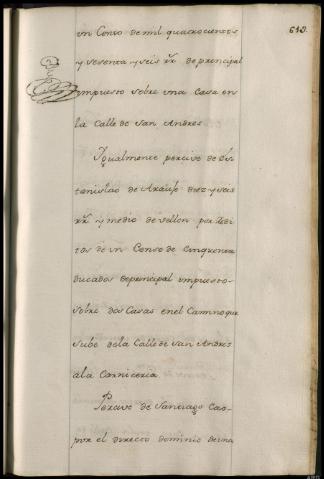 613.
un Censo de mil quatrocientos
y sesenta y seis rr.^s de principal
impuesto sobre una Casa en
la Calle de San Andres
Igualmente percive de Es-
tanislao de Araujo diez y seis
rr.^s y medio de vellon por redi-
tos de un Censo de cinquenta
ducados de principal impuesto
sobre dos Casas en el Camino que
sube de la Calle de San Andres
a la Carniceria
Percive de Santiago Cas-
por el directo dominio de una